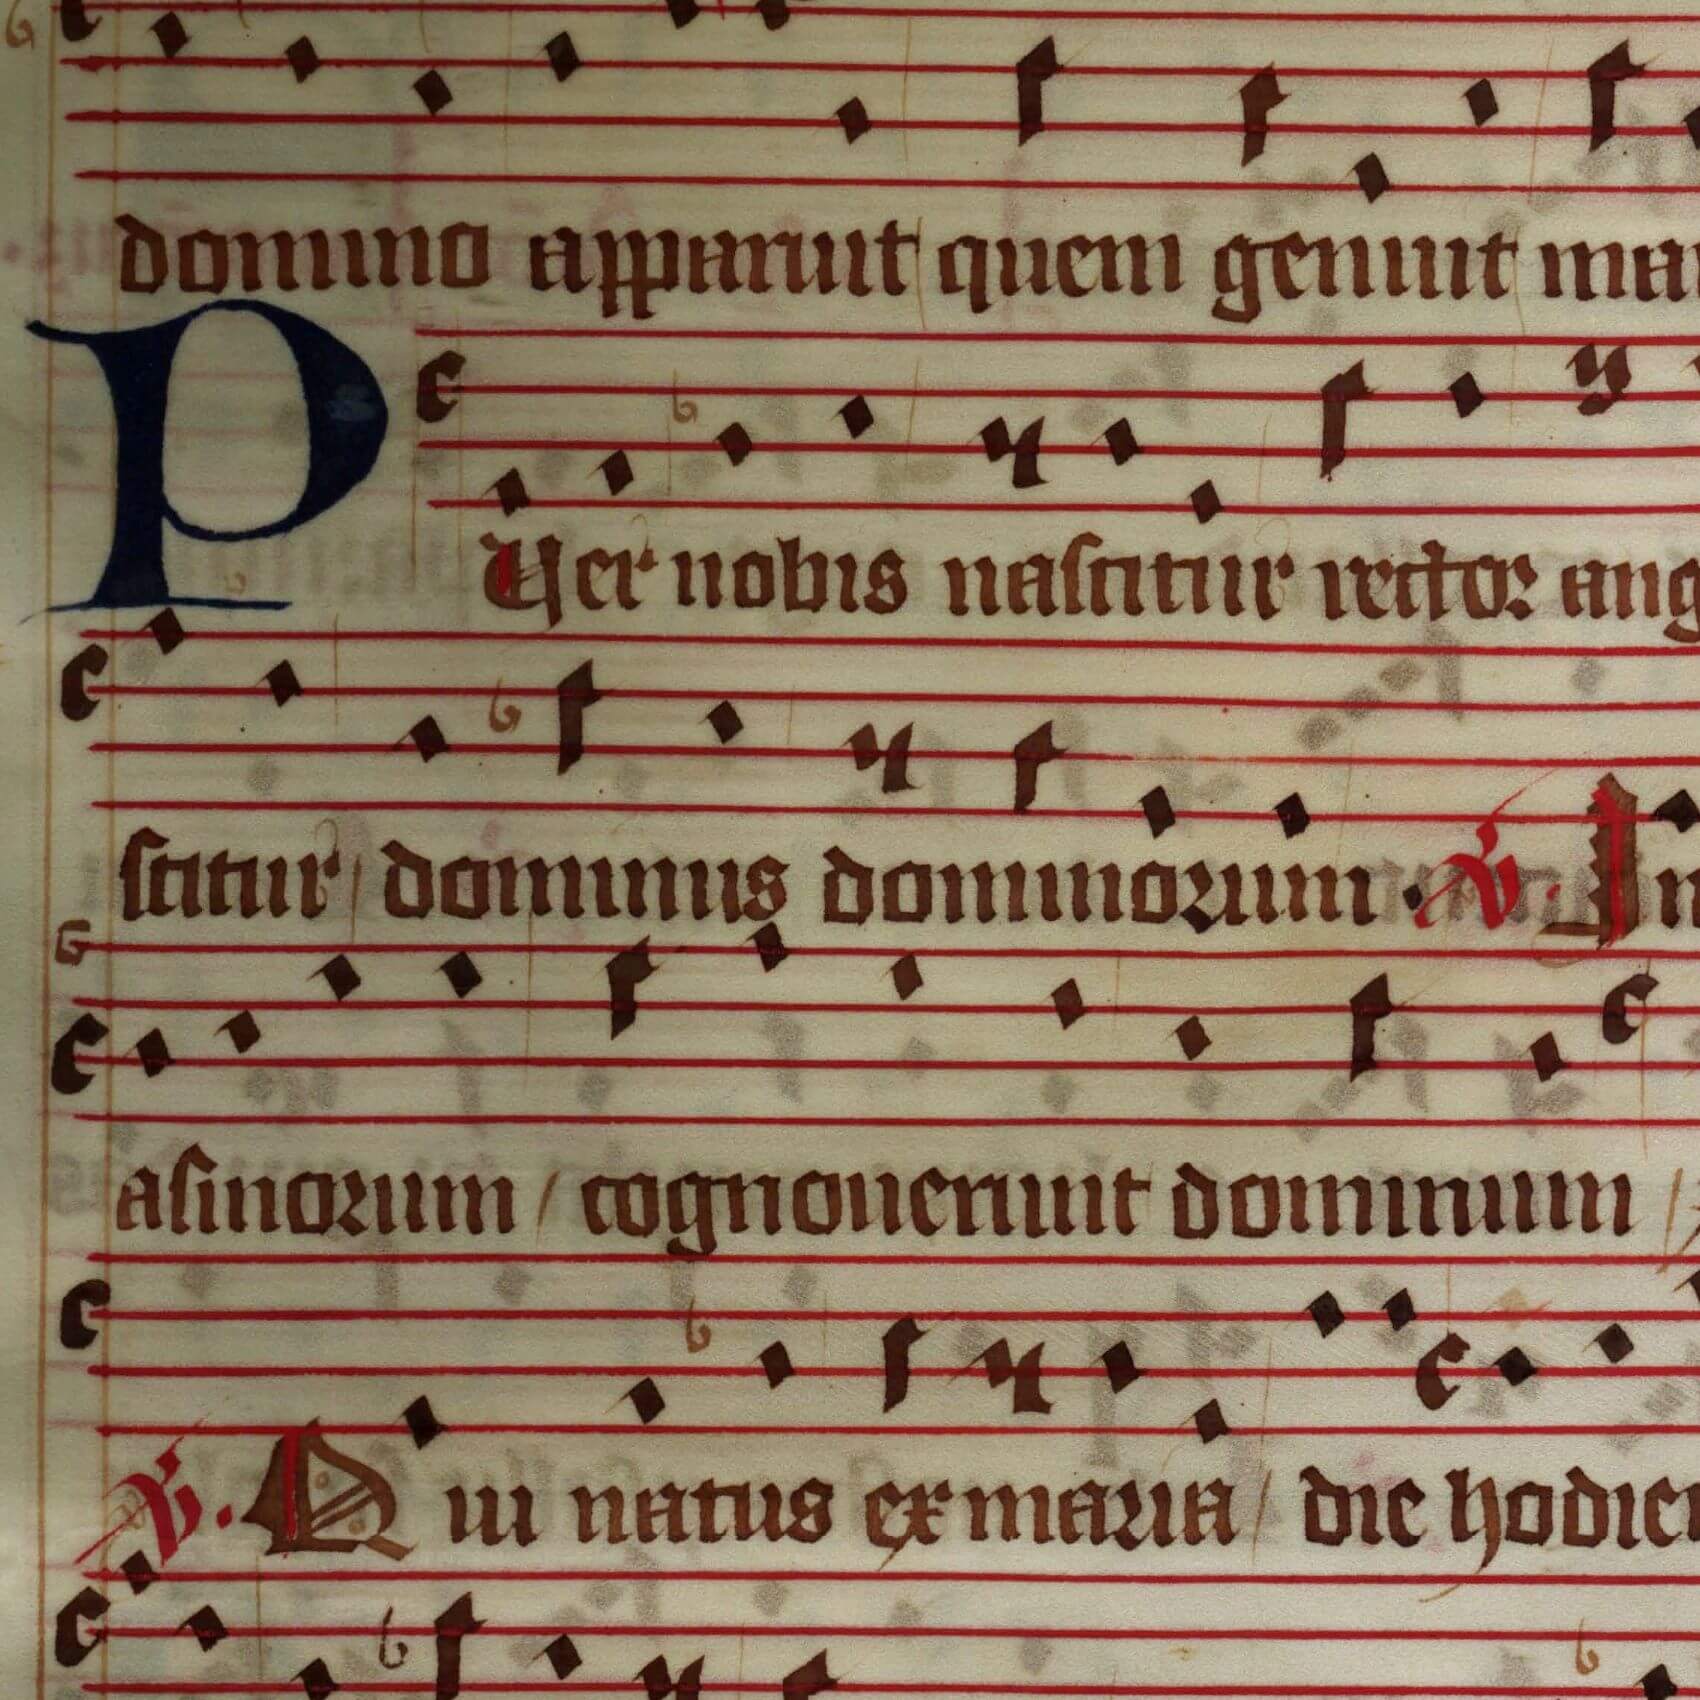 domino apparuit quem genuit mar
PUer nobis nascitur rector ang
scitur dominus dominorum. V. In
asinorum / cognouerunt dominum /
V. Qui natus ex maria / die hodier